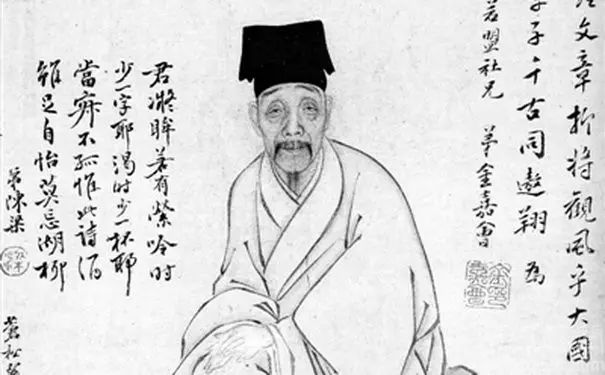 文章抑將觀風乎大國
子千古同遨翔 為
若盟社兄 弟金嘉會
君凝眸若有縈吟時
少一字耶渴時少一杯耶
當不孤惟此詩酒
自怡莫忘湖柳
弟陳梁